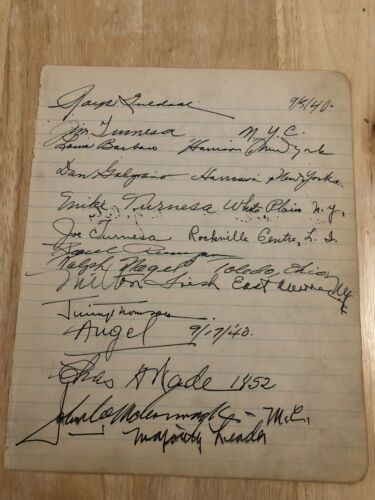 9/5/40.
Jim Turnesa N.Y.C.
Barbaro Harrison New York
Dan Galgano Harrison New York.
Mike Turnesa White Plain N.Y.
Joe Turnesa Rockville Centre, L. I.
Ralph Nagel Toledo, Ohio
Milton East
Jimmy Thomson
Angel 9/17/40.
Chas A Wade 1852
John W McCormack - M.C.
Majority Leader